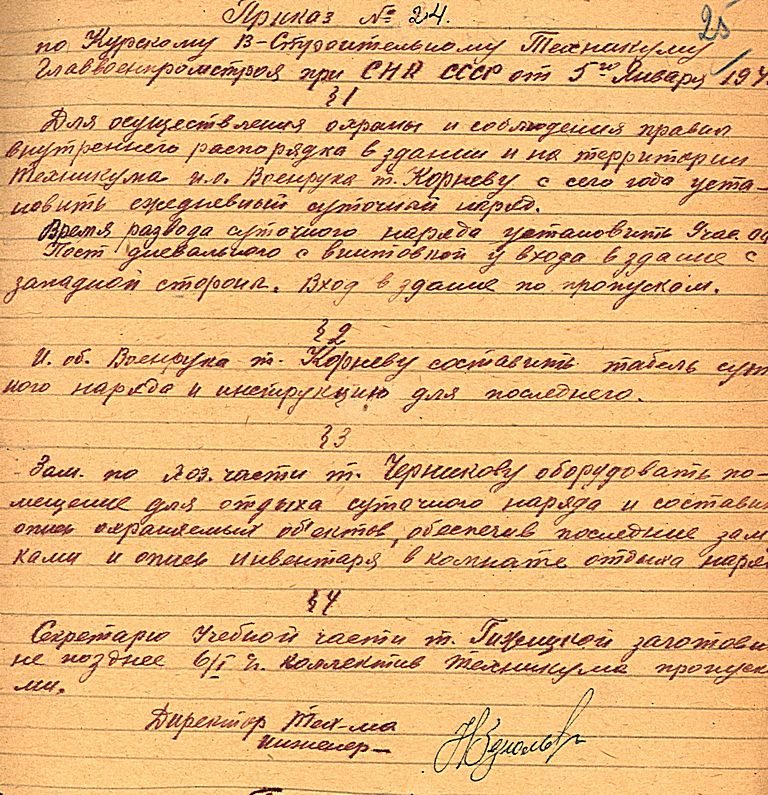 25
Приказ № 24.
по Курскому В-Строительному Техникуму
Главвоенпромстроя при СНК СССР от 5го Января 194
§1
Для осуществления охраны и соблюдения правил
внутреннего распорядка в здании и на территории
Техникума и.о. Военрука т. Корневу с сего года уста-
новить ежедневный суточный наряд.
Время развода суточного наряда установить 9 час. 00
Пост дневального с винтовкой у входа в здание с
западной стороны. Вход в здание по пропускам.
§2
И. об. Военрука т. Корневу составить табель суточ
ного наряда и инструкцию для последнего.
§3
Зам. по хоз. части т. Черникову оборудовать по-
мещение для отдыха суточного наряда и состави
опись охраняемых объектов, обеспечив последние зам
ками и опись инвентаря в комнате отдыха наря
§4
Секретарю Учебной части т. заготови
не позднее 6/I с.г. коллектив Техникума пропуска
ми.
Директор Тех-ма
инженер-